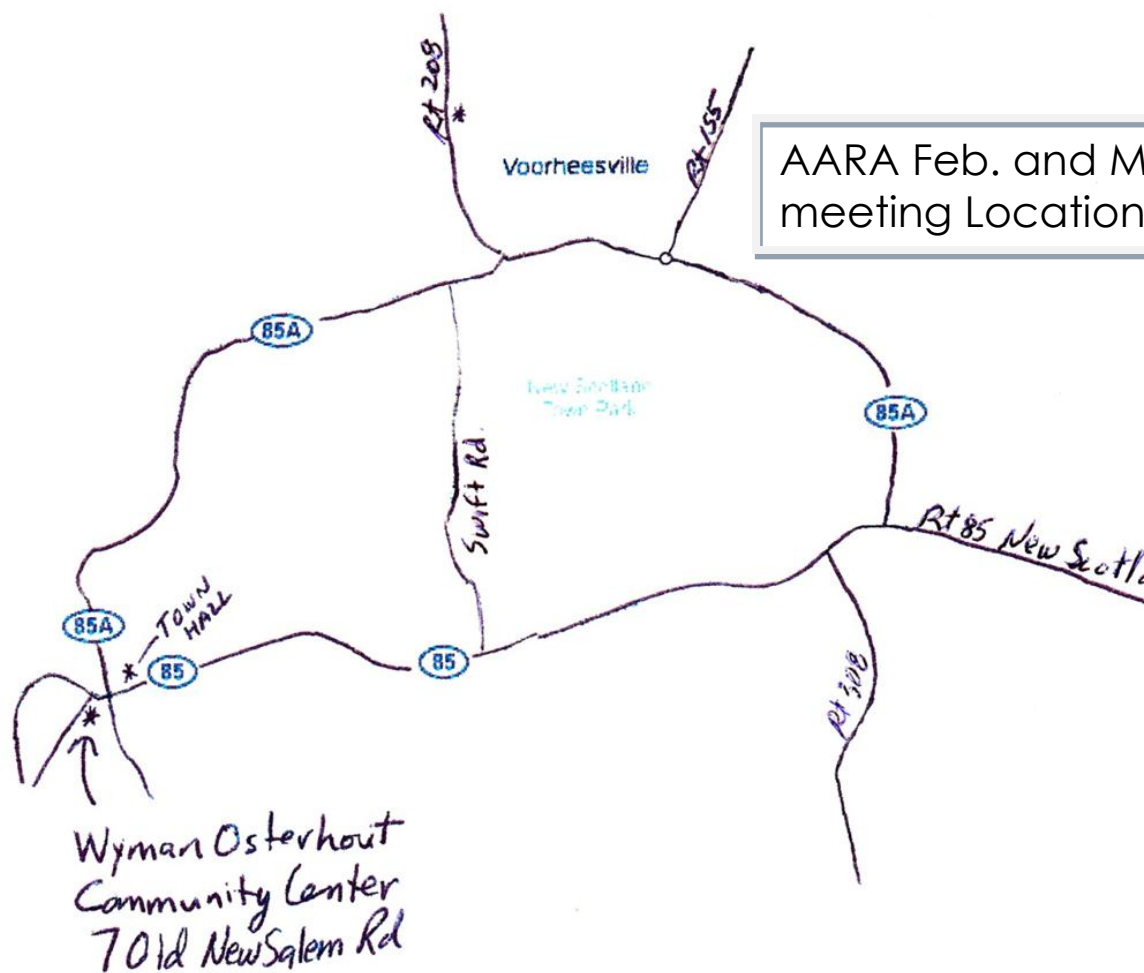 Rt 208
*
Rt 155
Voorheesville
AARA Feb. and M
meeting Location
85A
New Scotland
Town Park
85A
Swift Rd.
Rt 85 New Scotla
85A
* TOWN
HALL
85
85
*
Rt 308
Wyman Osterhout
Community Center
7 Old New Salem Rd